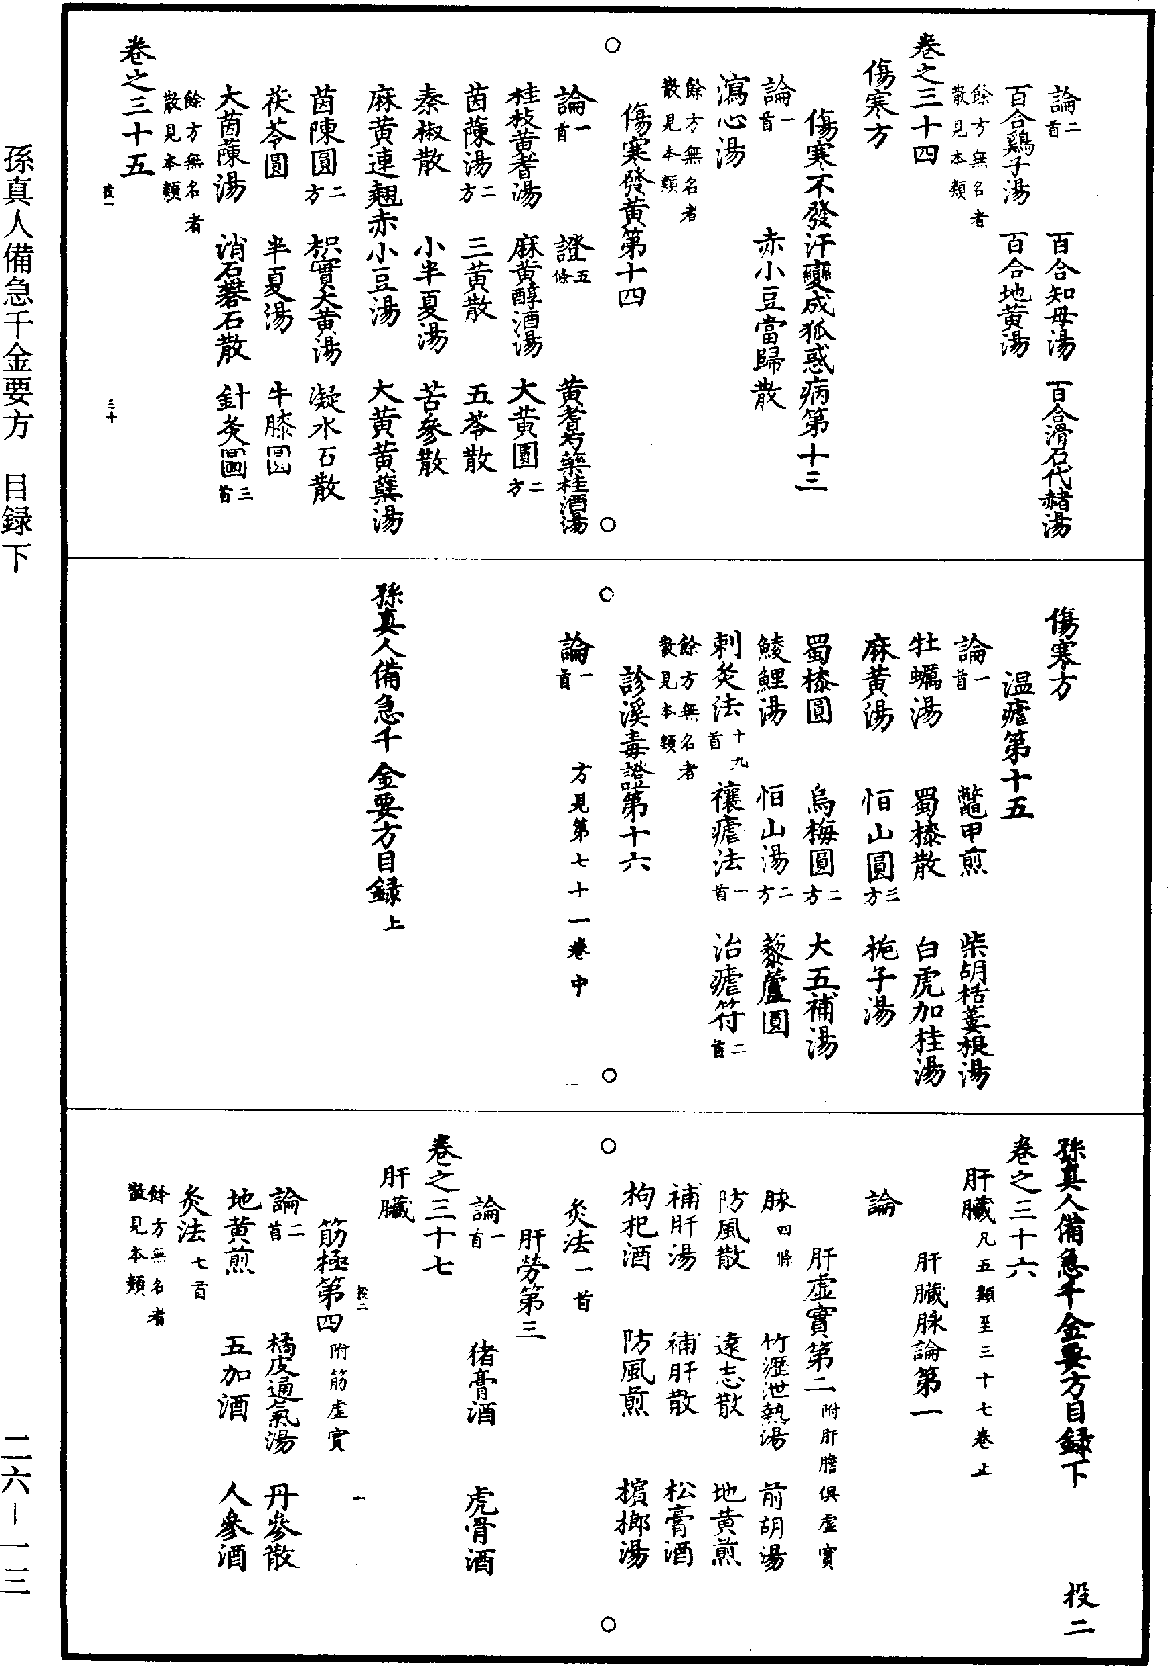 論二首　百合知母湯　百合滑石代赭湯
百合鷄子湯　百合地黃湯
餘方無名者散見本類
卷之三十四
傷寒方
傷寒不發汗變成狐惑病第十三
論一首　赤小豆當歸散
瀉心湯
餘方無名者散見本類
傷寒發黃第十四
論一首　證五條　黃耆芍藥桂酒湯
桂枝黃耆湯　麻黃醇酒湯　大黃圓二方
茵蔯湯二方　三黃散　五苓散
秦椒散　小半夏湯　苦參散
麻黃連翹赤小豆湯　大黃黃蘗湯
茵陳圓二方　枳實大黃湯　凝水石散
茯苓圓　半夏湯　牛膝圓
大茵蔯湯　消石礬石散　針灸圖三首
餘方無名者散見本類
卷之三十五
傷寒方
温瘧第十五
論一首　鼈甲煎　柴胡栝蔞根湯
牡蠣湯　蜀桼散　白虎加桂湯
麻黃湯　恒山圓三方　梔子湯
蜀桼圓　烏梅圓二方　大五補湯
鯪鯉湯　恒山湯二方　藜蘆圓
刺灸法十九首　禳瘧法一首　治瘧符二首
餘方無名者散見本類
診溪毒證第十六
論一首　方見第七十一卷中
孫真人備急千金要方目録上
孫真人備急千金要方目録下　投二
卷之三十六
肝臟凡五類至三十七卷上
肝臟脉論第一
論
肝虛實第二附肝膽俱虛實
脉四條　竹瀝泄熱湯　前胡湯
防風散　遠志散　地黃煎
補肝湯　補肝散　松膏酒
枸杞酒　防風煎　檳榔湯
灸法一首
肝勞第三
論一首　猪膏酒　虎骨酒
卷之三十七
肝臟
筋極第四附筋虛實
論二首　橘皮通氣湯　丹參散
地黃煎　五加酒　人參酒
灸法七首
餘方無名者散見本類
孫真人備急千金要方　目録下
二六－一三